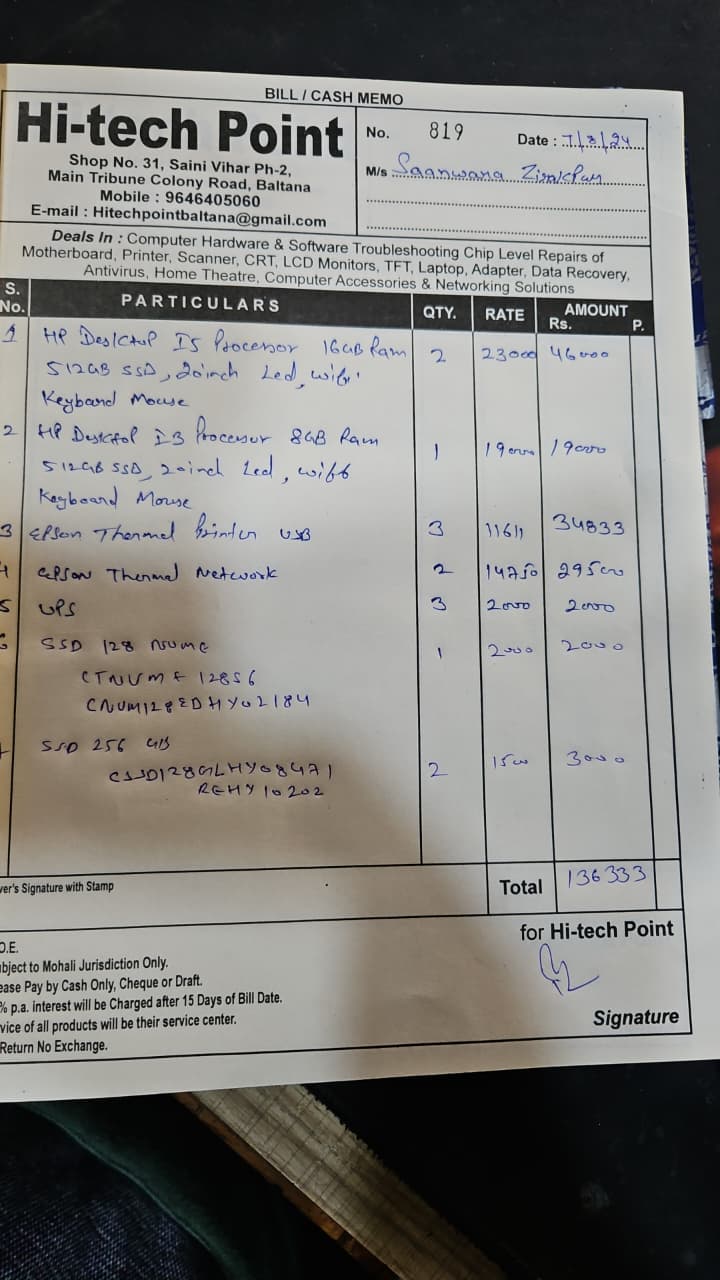 BILL / CASH MEMO
Hi-tech Point
Shop No. 31, Saini Vihar Ph-2,
Main Tribune Colony Road, Baltana
Mobile : 9646405060
E-mail : Hitechpointbaltana@gmail.com
No. 819 Date : 7/8/24
M/s
Deals In : Computer Hardware & Software Troubleshooting Chip Level Repairs of
Motherboard, Printer, Scanner, CRT, LCD Monitors, TFT, Laptop, Adapter, Data Recovery,
Antivirus, Home Theatre, Computer Accessories & Networking Solutions
S. No. PARTICULARS QTY. RATE AMOUNT Rs. P.
1 HP Desktop I5 Processor 16GB Ram 2 23000 46000
512GB SSD, 20inch Led, wifi
Keyboard Mouse
2 HP Desktop I3 Processor 8GB Ram 1 19000 19000
512GB SSD, 20inch Led, wifi
Keyboard Mouse
3 Epson Thermal Printer USB 3 11611 34833
4 Epson Thermal Network 2 14750 29500
5 UPS 3 2000 2000
SSD 128 NVME 1 2000 2000
SSD 256 GB
2 1500 3000
REHY10202
ver's Signature with Stamp
Total 136333
for Hi-tech Point
O.E.
bject to Mohali Jurisdiction Only.
ease Pay by Cash Only, Cheque or Draft.
% p.a. interest will be Charged after 15 Days of Bill Date.
vice of all products will be their service center.
Return No Exchange.
Signature